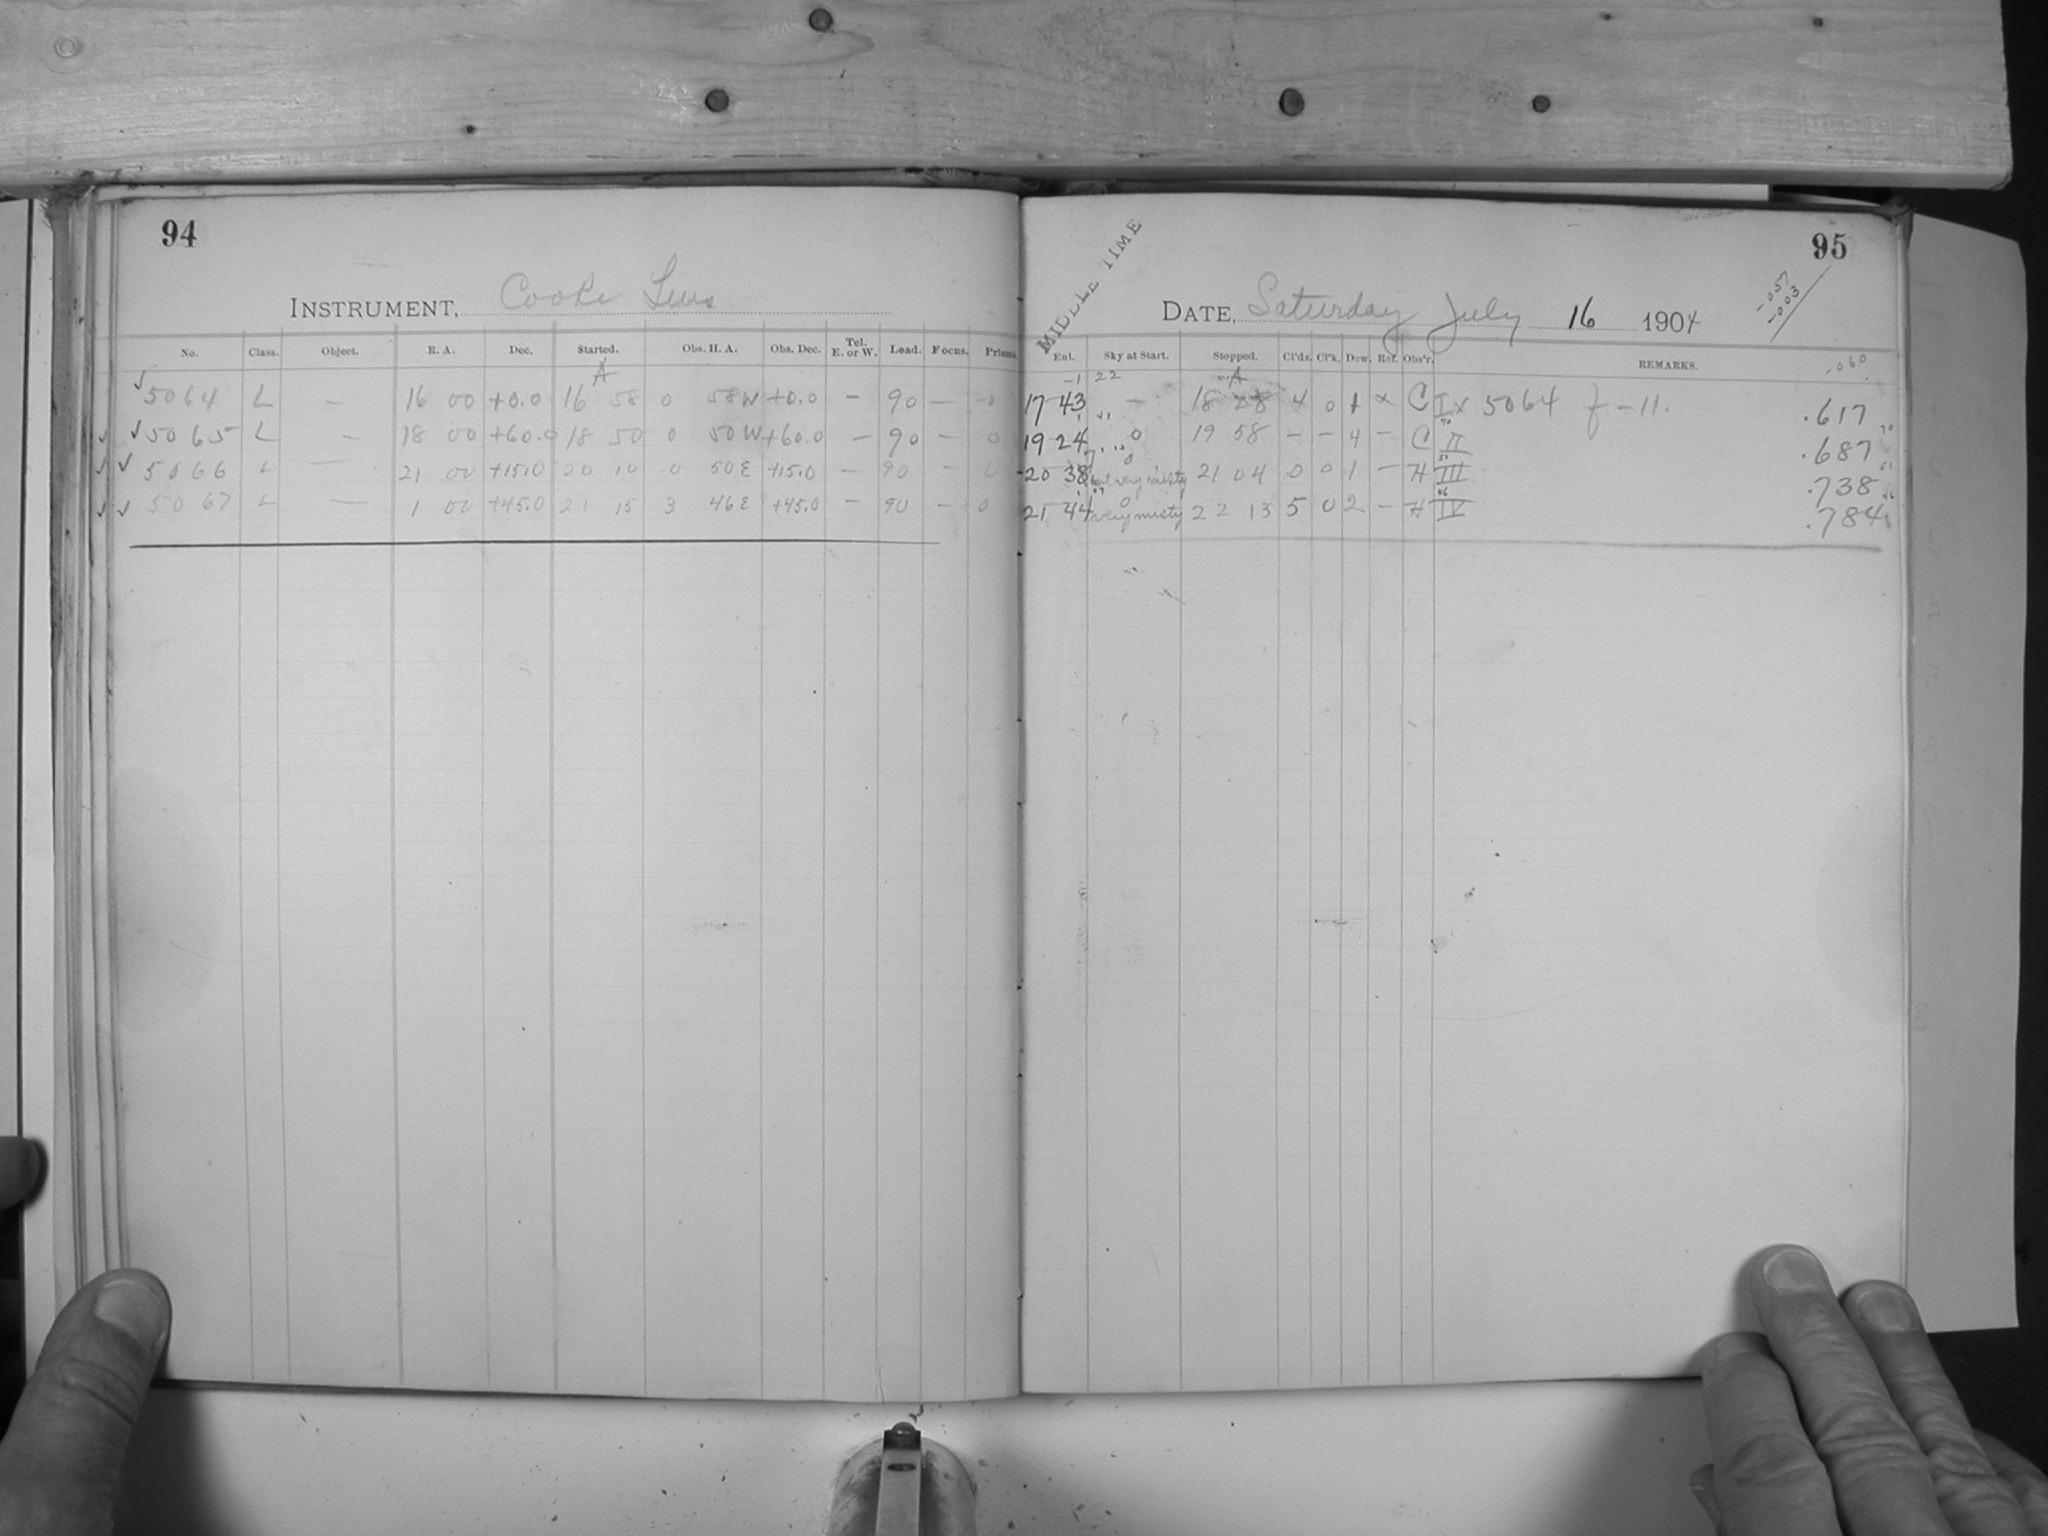 94
INSTRUMENT, Cooke Lens
No. Class. Object. R. A. Dec. Started. Obs. H. A. Obs. Dec. Tel. E. or W. Load. Focus. Prisms.
A
✓ 5064 L — 16 00 +0.0 16 58 0 58W +0.0 — 90 — 0
✓ ✓ 5065 L — 18 00 +60.0 18 50 0 50W +60.0 — 90 — 0
✓ ✓ 5066 L — 21 00 +15.0 20 10 0 50E +15.0 — 90 — 0
✓ ✓ 5067 L — 1 00 +45.0 21 15 3 46E +45.0 — 90 — 0
95
MIDDLE TIME
DATE, Saturday July 16 1904
-057
-003
-060
Ent. Sky at Start. Stopped. Cl'ds. Cl'k. Dew. Ref. Obs'r. REMARKS.
-1 22 A
17 43 — 18 28 4 0 1 × C I × 5064 f -11. .617
19 24 0 19 58 — — 4 — C II .687
70 70
20 38 0 but very misty 21 04 0 0 1 — H III .738
51 51
21 44 0 very misty 22 13 5 0 2 — H IV .784
46 46